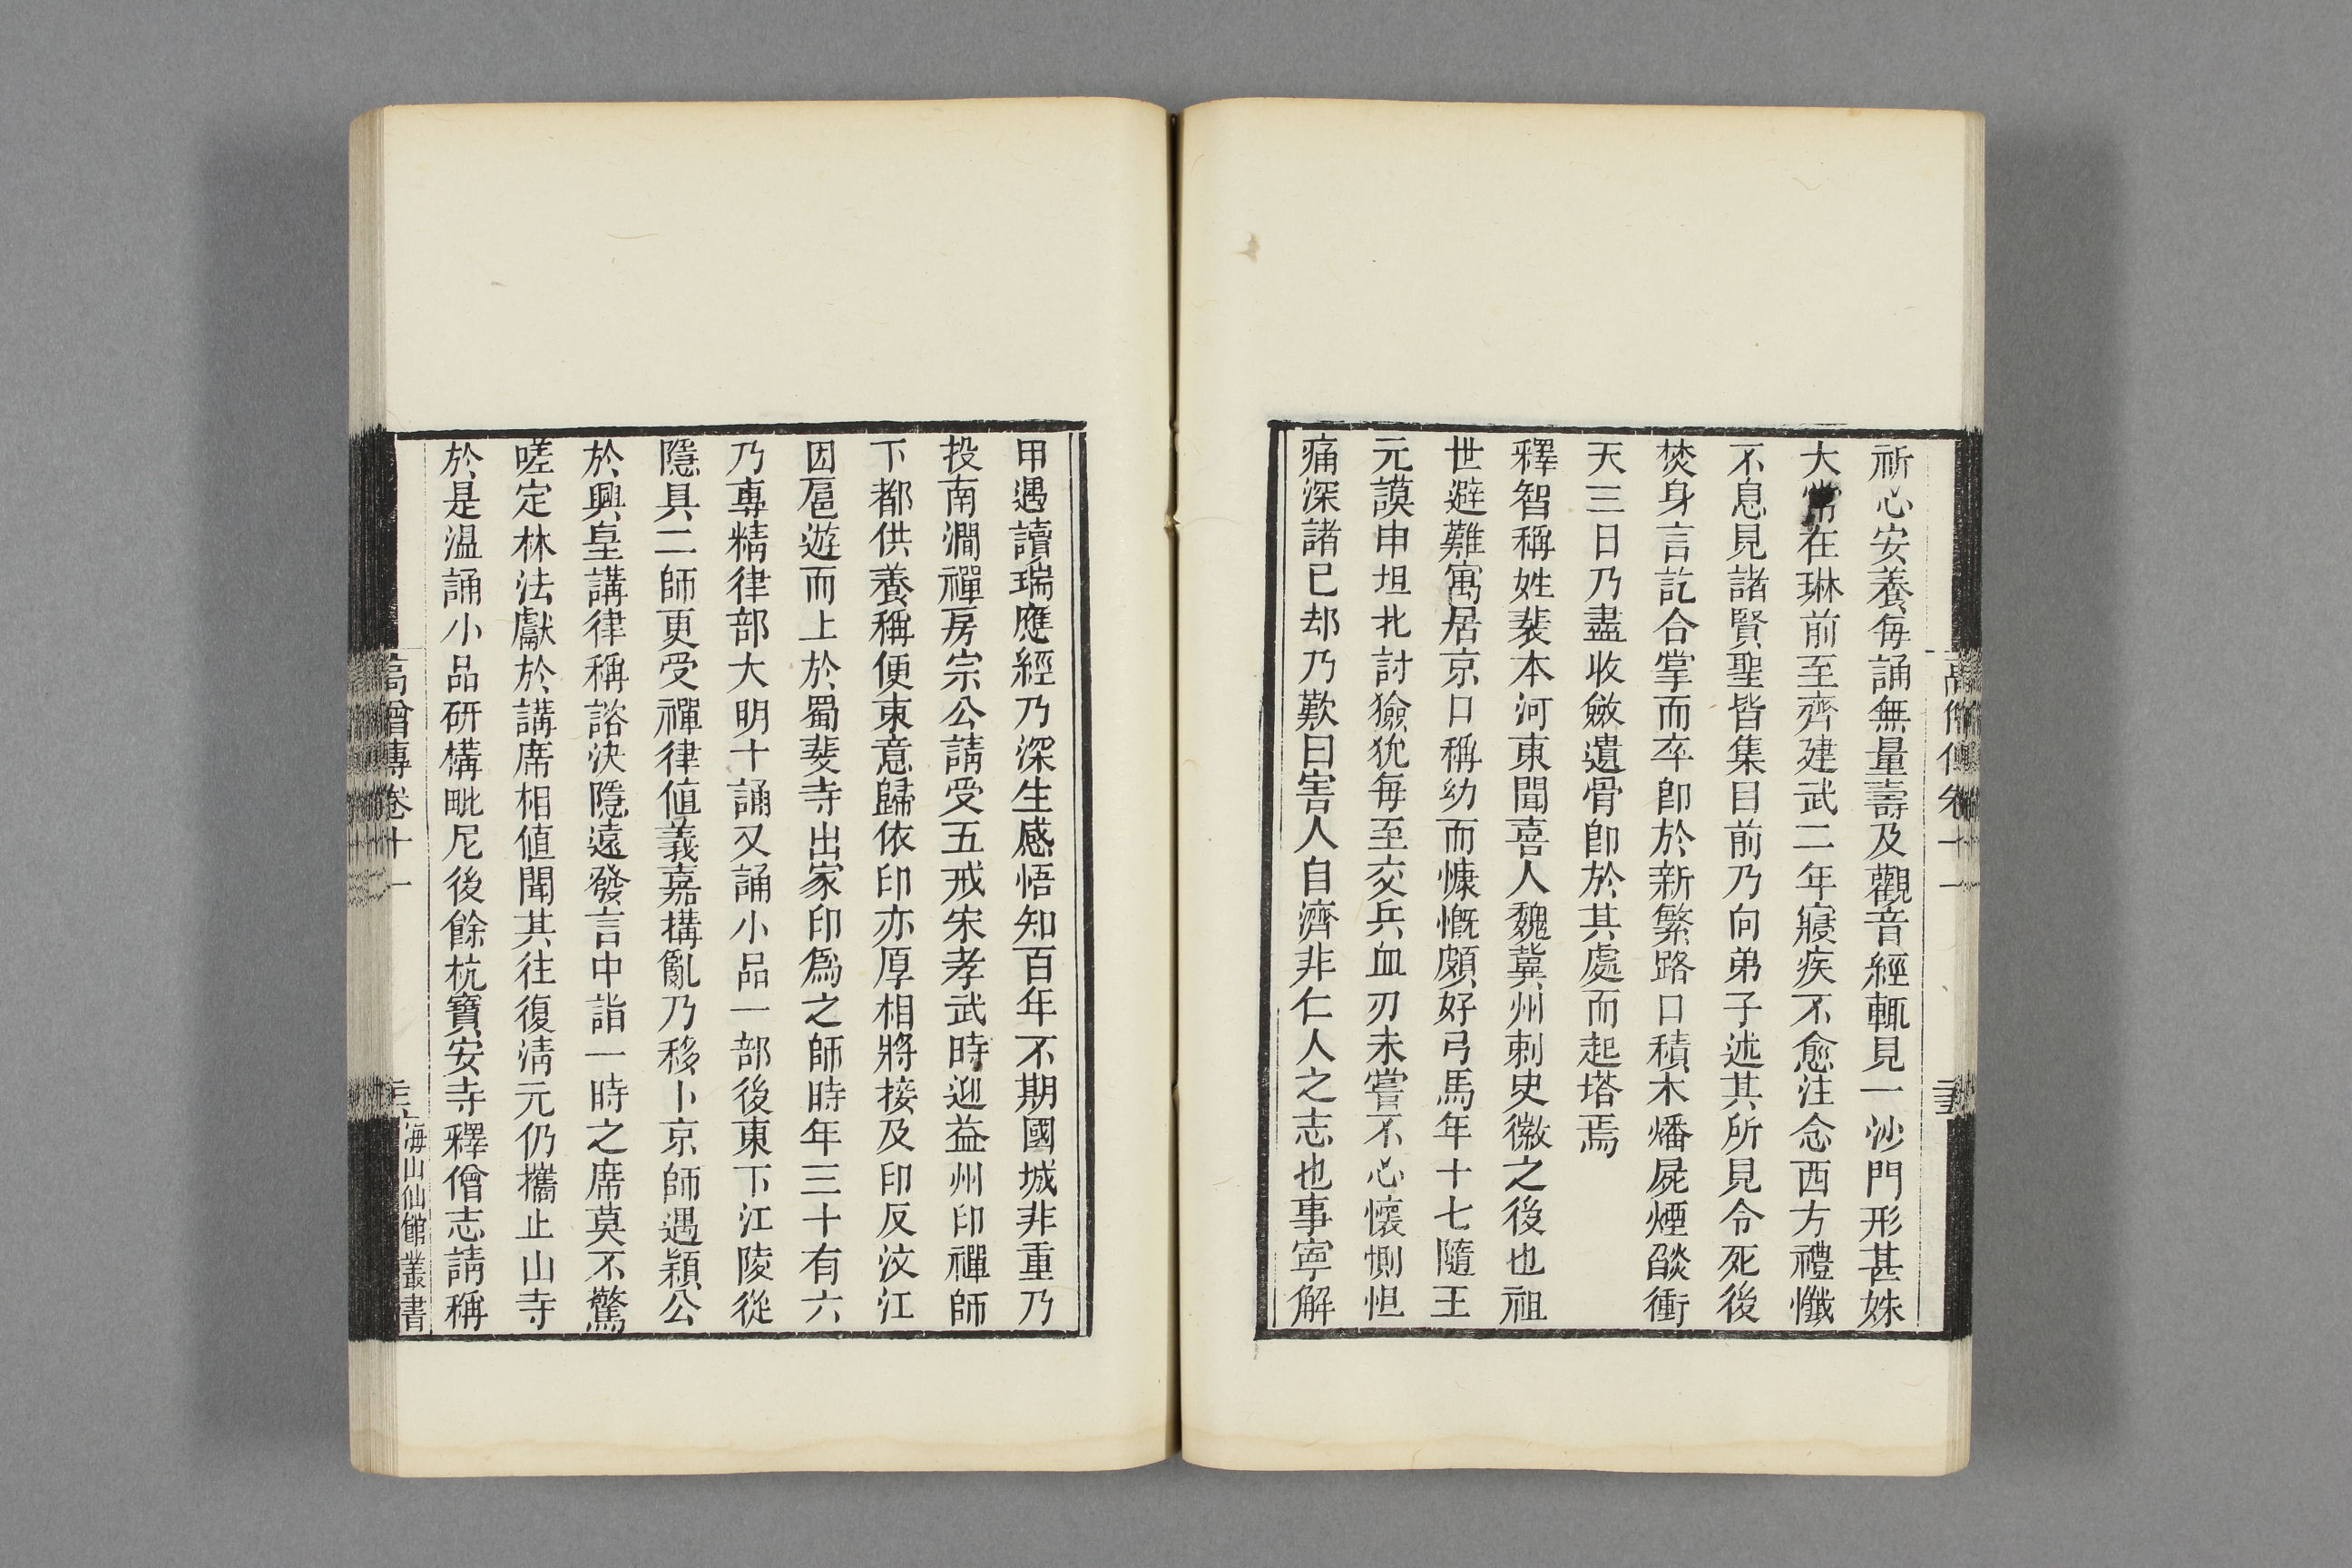 祈心安養每誦無量壽及觀音經輒見一沙門形甚姝
大常在琳前至齊建武二年寢疾不愈注念西方禮懺
不息見諸賢聖皆集目前乃向弟子述其所見令死後
焚身言訖合掌而卒卽於新繁路口積木燔屍煙𦦨衝
天三日乃盡收斂遺骨卽於其處而起塔焉
釋智稱姓裴本河東聞喜人魏冀州刺史徽之後也祖
世避難寓居京口稱幼而慷慨頗好弓馬年十七隨王
元謨申坦北討獫狁每至交兵血刃未嘗不心懷惻怛
痛深諸已却乃歎曰害人自濟非仁人之志也事寧解
甲遇讀瑞應經乃深生感悟知百年不期國城非重乃
投南澗禪房宗公請受五戒宋孝武時迎益州印禪師
下都供養稱便束意歸依印亦厚相將接及印反汶江
因扈遊而上於蜀裴寺出家印爲之師時年三十有六
乃專精律部大明十誦又誦小品一部後東下江陵從
隱具二師更受禪律値義嘉搆亂乃移卜京師遇穎公
於興皇講律稱諮決隱遠發言中詣一時之席莫不驚
嗟定林法獻於講席相値聞其往復淸元仍攜止山寺
於是温誦小品研構毗尼後餘杭寶安寺釋僧志請稱
高僧傳卷十一
海山仙館叢書